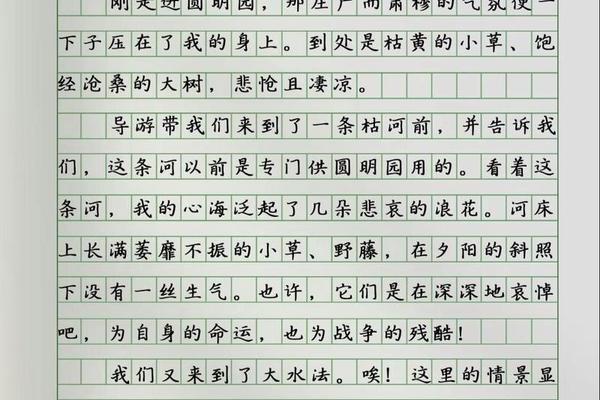 刚是进圆明园，那庄严而肃穆的气氛便一
下子压在了我的身上。到处是枯黄的小草、饱
经沧桑的大树，悲怆且凄凉。
导游带我们来到了一条枯河前，并告诉我
们，这条河以前是专门供圆明园用的。看着这
条河，我的心海泛起了几朵悲哀的浪花。河床
上长满萎靡不振的小草、野藤，在夕阳的斜照
下没有一丝生气。也许，它们是在深深地哀悼
吧，为自身的命运，也为战争的残酷！
我们又来到了大水法。唉！这里的情景显